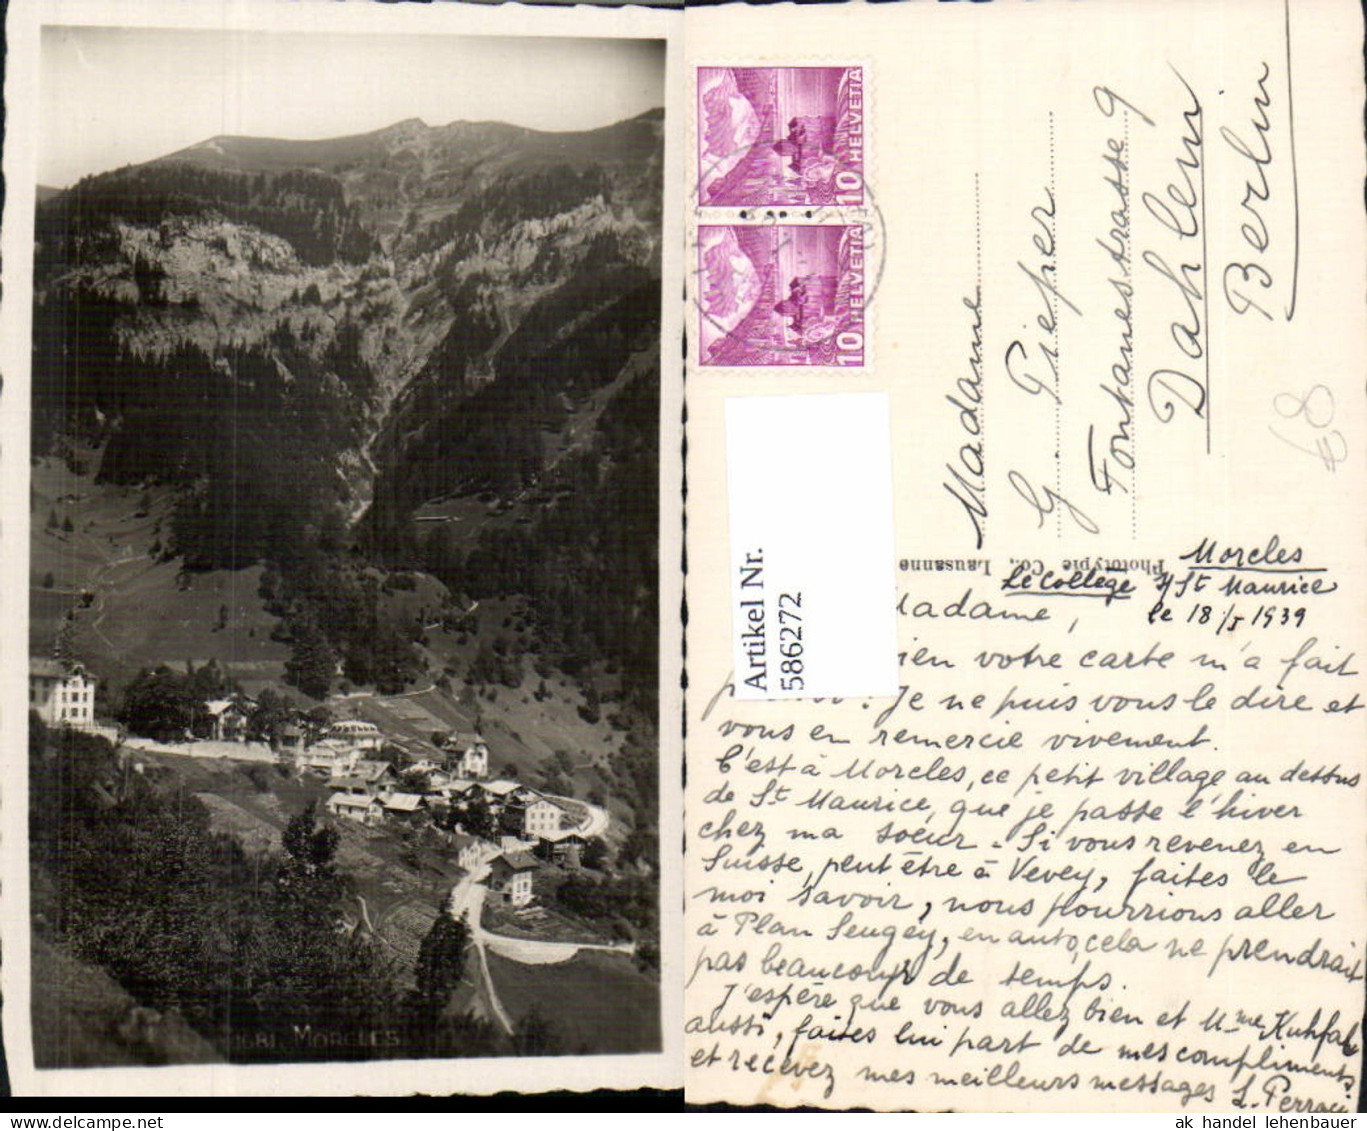 1681 MORCLES
HELVETIA
10
HELVETIA
10
Madame
G Pieper
Fontanestrasse 9
Dahlem
Berlin
€8
Artikel Nr.
586272
Phototypie Co., Lausanne
Morcles
Le College s/ St Maurice
le 18/I 1939
Madame,
bien votre carte m'a fait
Je ne puis vous le dire et
vous en remercie vivement.
C'est à Morcles, ce petit village au dessus
de St Maurice, que je passe l'hiver
chez ma soeur. Si vous revenez en
Suisse, peut être à Vevey, faites le
moi savoir, nous pourrions aller
à Plan en auto, cela ne prendrait
pas beaucoup de temps.
J'espère que vous allez bien et Mme
aussi, faites lui part de mes compliments
et recevez mes meilleurs messages L.
ak handel lehenbauer